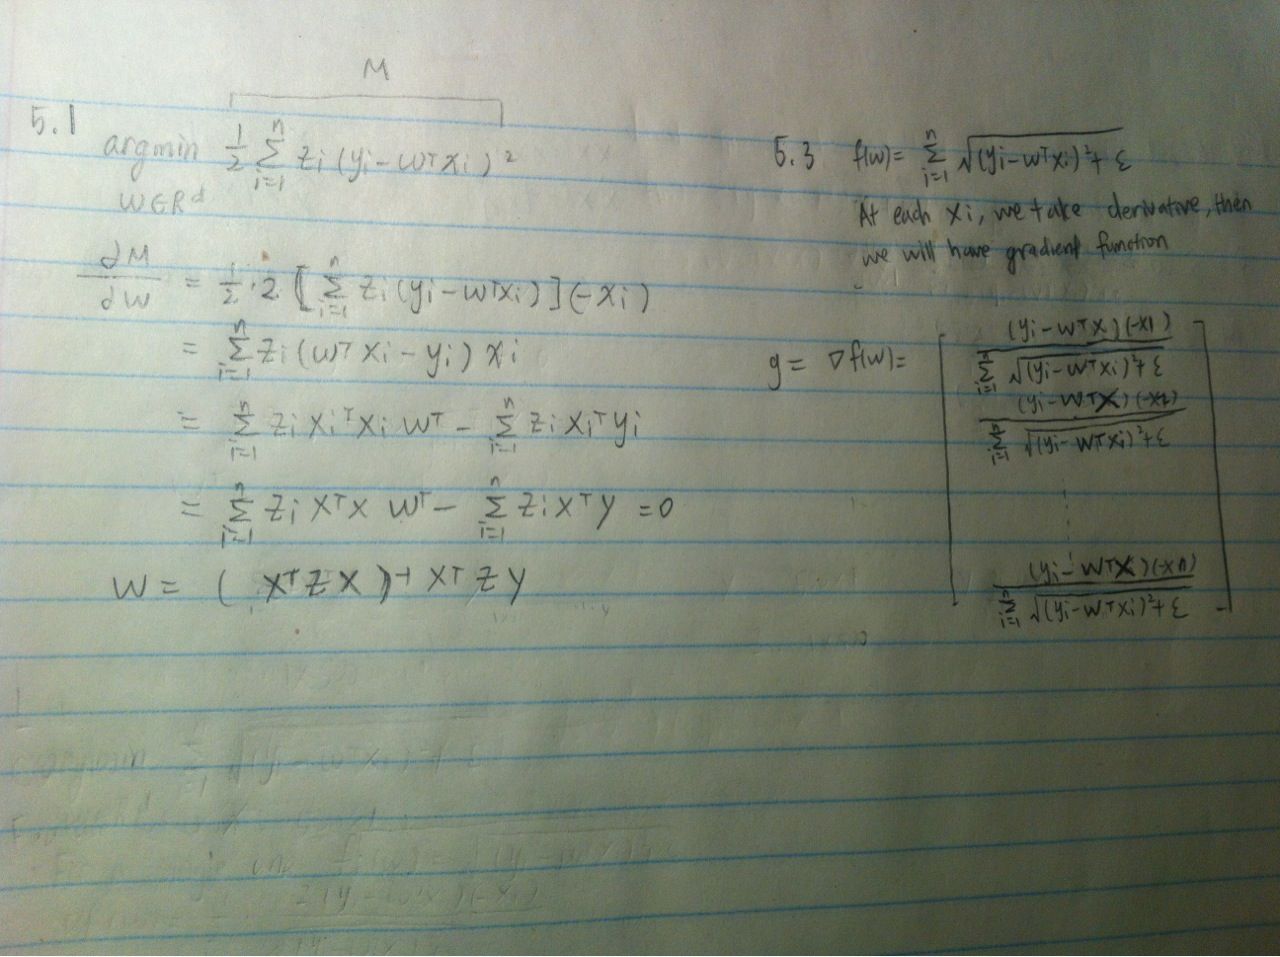 M
5.1
argmin 1/2 Σ_{i=1}^{n} zi (yi - wᵀxi)²
W∈Rᵈ
∂M/∂W = 1/2 · 2 [Σ_{i=1}^{n} zi (yi - wᵀxi)] (-xi)
= Σ_{i=1}^{n} zi (wᵀxi - yi) xi
= Σ_{i=1}^{n} zi xiᵀxi wᵀ - Σ_{i=1}^{n} zi xiᵀyi
= Σ_{i=1}^{n} zi xᵀx wᵀ - Σ_{i=1}^{n} zi xᵀy = 0
W = ( xᵀzx)⁻¹ xᵀzy
5.3 f(w) = Σ_{i=1}^{n} √((yi - wᵀxi)² + ε
At each xi, we take derivative, then
we will have gradient function
g = ∇f(w) =
(yi - wᵀx)(-x1) / Σ_{i=1}^{n} √((yi - wᵀxi)² + ε
(yi - wᵀx)(-x2) / Σ_{i=1}^{n} √((yi - wᵀxi)² + ε
⋮
(yi - wᵀx)(-xn) / Σ_{i=1}^{n} √((yi - wᵀxi)² + ε